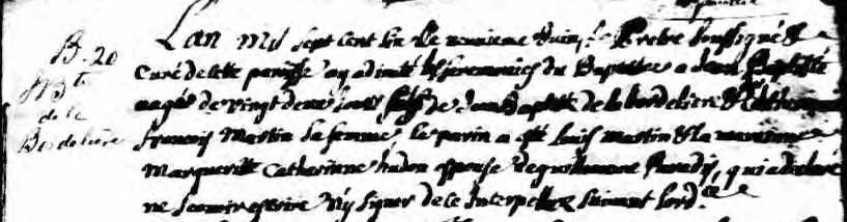 B. 20
J Bte
de la
Bordeliere
Lan Mil sept cent six Le neuvieme Juin, Je Pretre soussigné &
Curé de cette paroisse ay adjouté les ceremonies du Baptesme a Jean Baptiste
nagé de vingt deux jours fils de Jean Baptiste de la bordeliere & Catherinne
francois Martin sa femme, Le parin a esté Louis Martin & La maraine
Marguerite Catherinne épouse de guillaume Paradis, qui a declaré
ne scavoir escrire Ny signer de ce Interpellée suivant Lordce